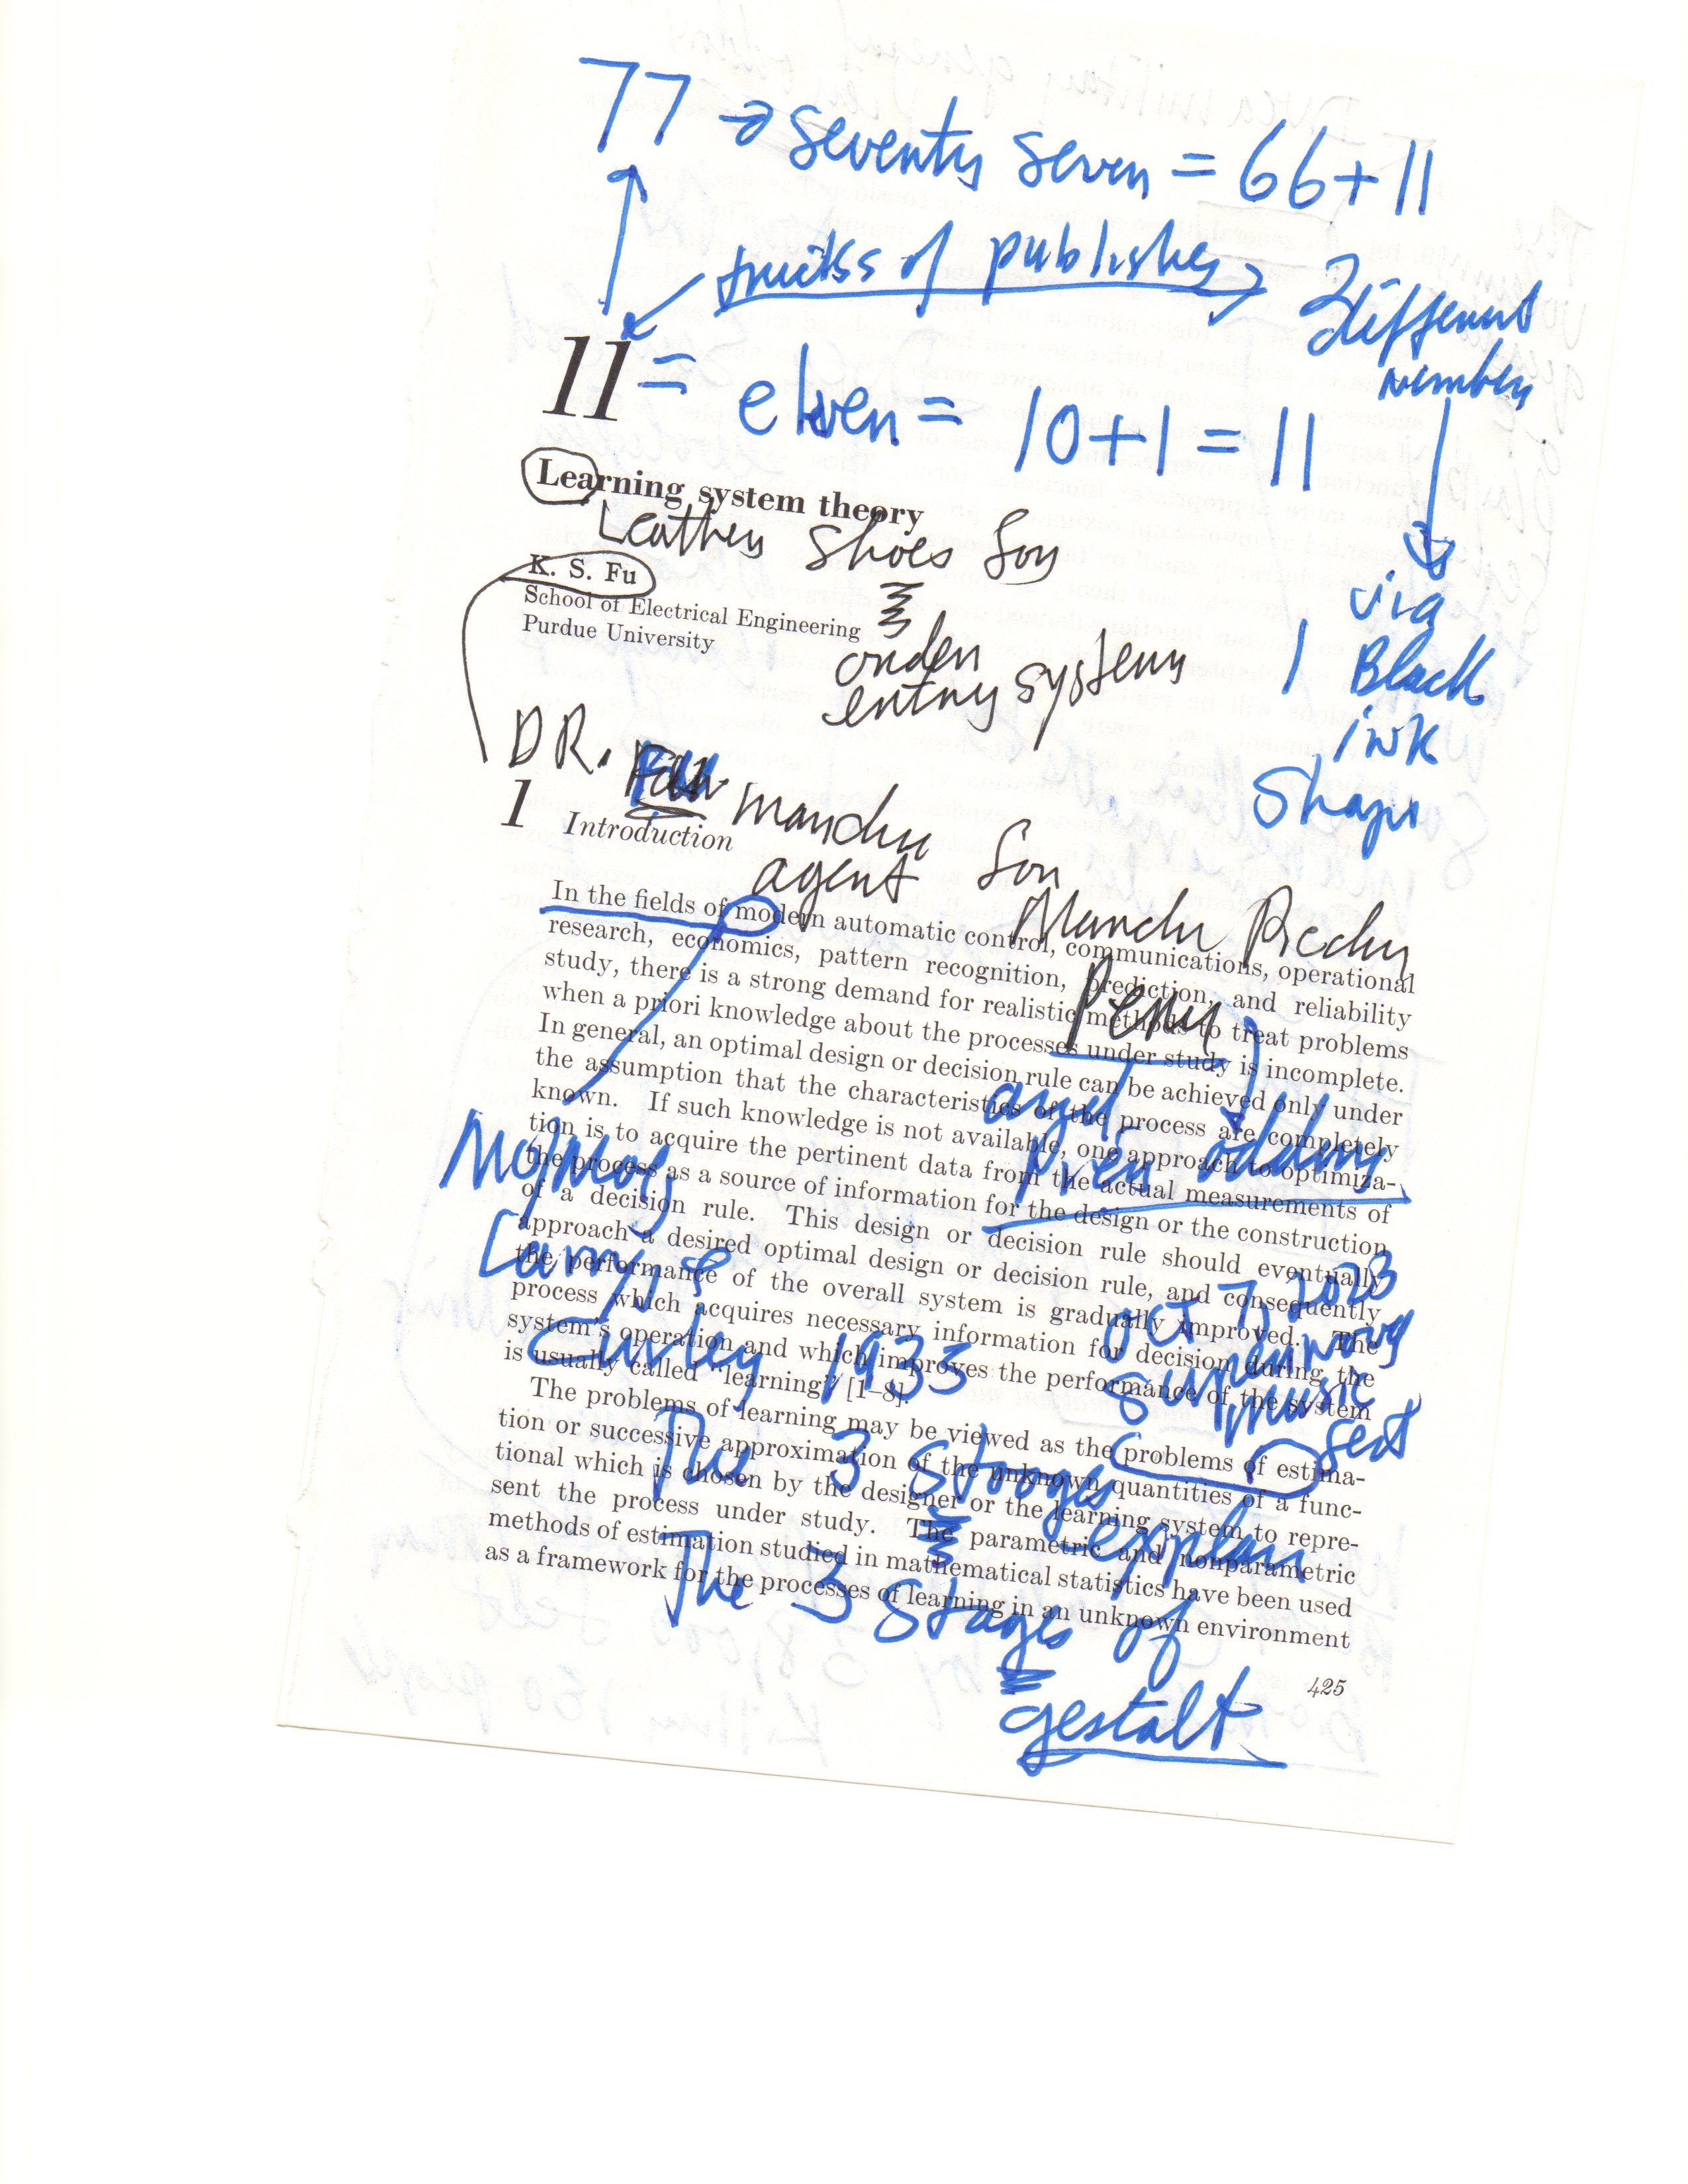 77 → seventy seven = 66+11
tricks of publisher → 2 different
number
11 = eleven = 10+1 = 11
Learning system theory
Leather Shoes Son
K. S. Fu
School of Electrical Engineering
Purdue University
order
entry systems
via
Black
ink
Shape
DR. Fu manchu
1 Introduction
agent Son
Manchu
In the fields of modern automatic control, communications, operational
research, economics, pattern recognition, prediction, and reliability
study, there is a strong demand for realistic methods to treat problems
when a priori knowledge about the processes under study is incomplete.
In general, an optimal design or decision rule can be achieved only under
the assumption that the characteristics of the process are completely
known. If such knowledge is not available, one approach to optimiza-
tion is to acquire the pertinent data from the actual measurements of
the process as a source of information for the design or the construction
of a decision rule. This design or decision rule should eventually
approach a desired optimal design or decision rule, and consequently
the performance of the overall system is gradually improved. The
process which acquires necessary information for decision during the
system's operation and which improves the performance of the system
is usually called "learning" [1–8].
and
Mo/Moe
Larry &
Curley 1933
oct 7, 2023
music
The 3 Stooges
explain
The 3 Stages of
gestalt
The problems of learning may be viewed as the problems of estima-
tion or successive approximation of the unknown quantities of a func-
tional which is chosen by the designer or the learning system to repre-
sent the process under study. The parametric and nonparametric
methods of estimation studied in mathematical statistics have been used
as a framework for the processes of learning in an unknown environment
425